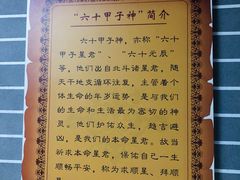 “六十甲子神”简介
六十甲子神，亦称“六十
甲子星君”、“六十元辰”
等，他们出自北斗诸星君。随
天干地支循环往复，主管着个
体生命的年岁运势，是与我们
的生命和生活最为密切的神
灵。他们护佑众生，趋吉避
凶，是我们的本命星君。故当
祈求本命星君，保佑自己一生
顺畅平安，称为求顺星、拜顺